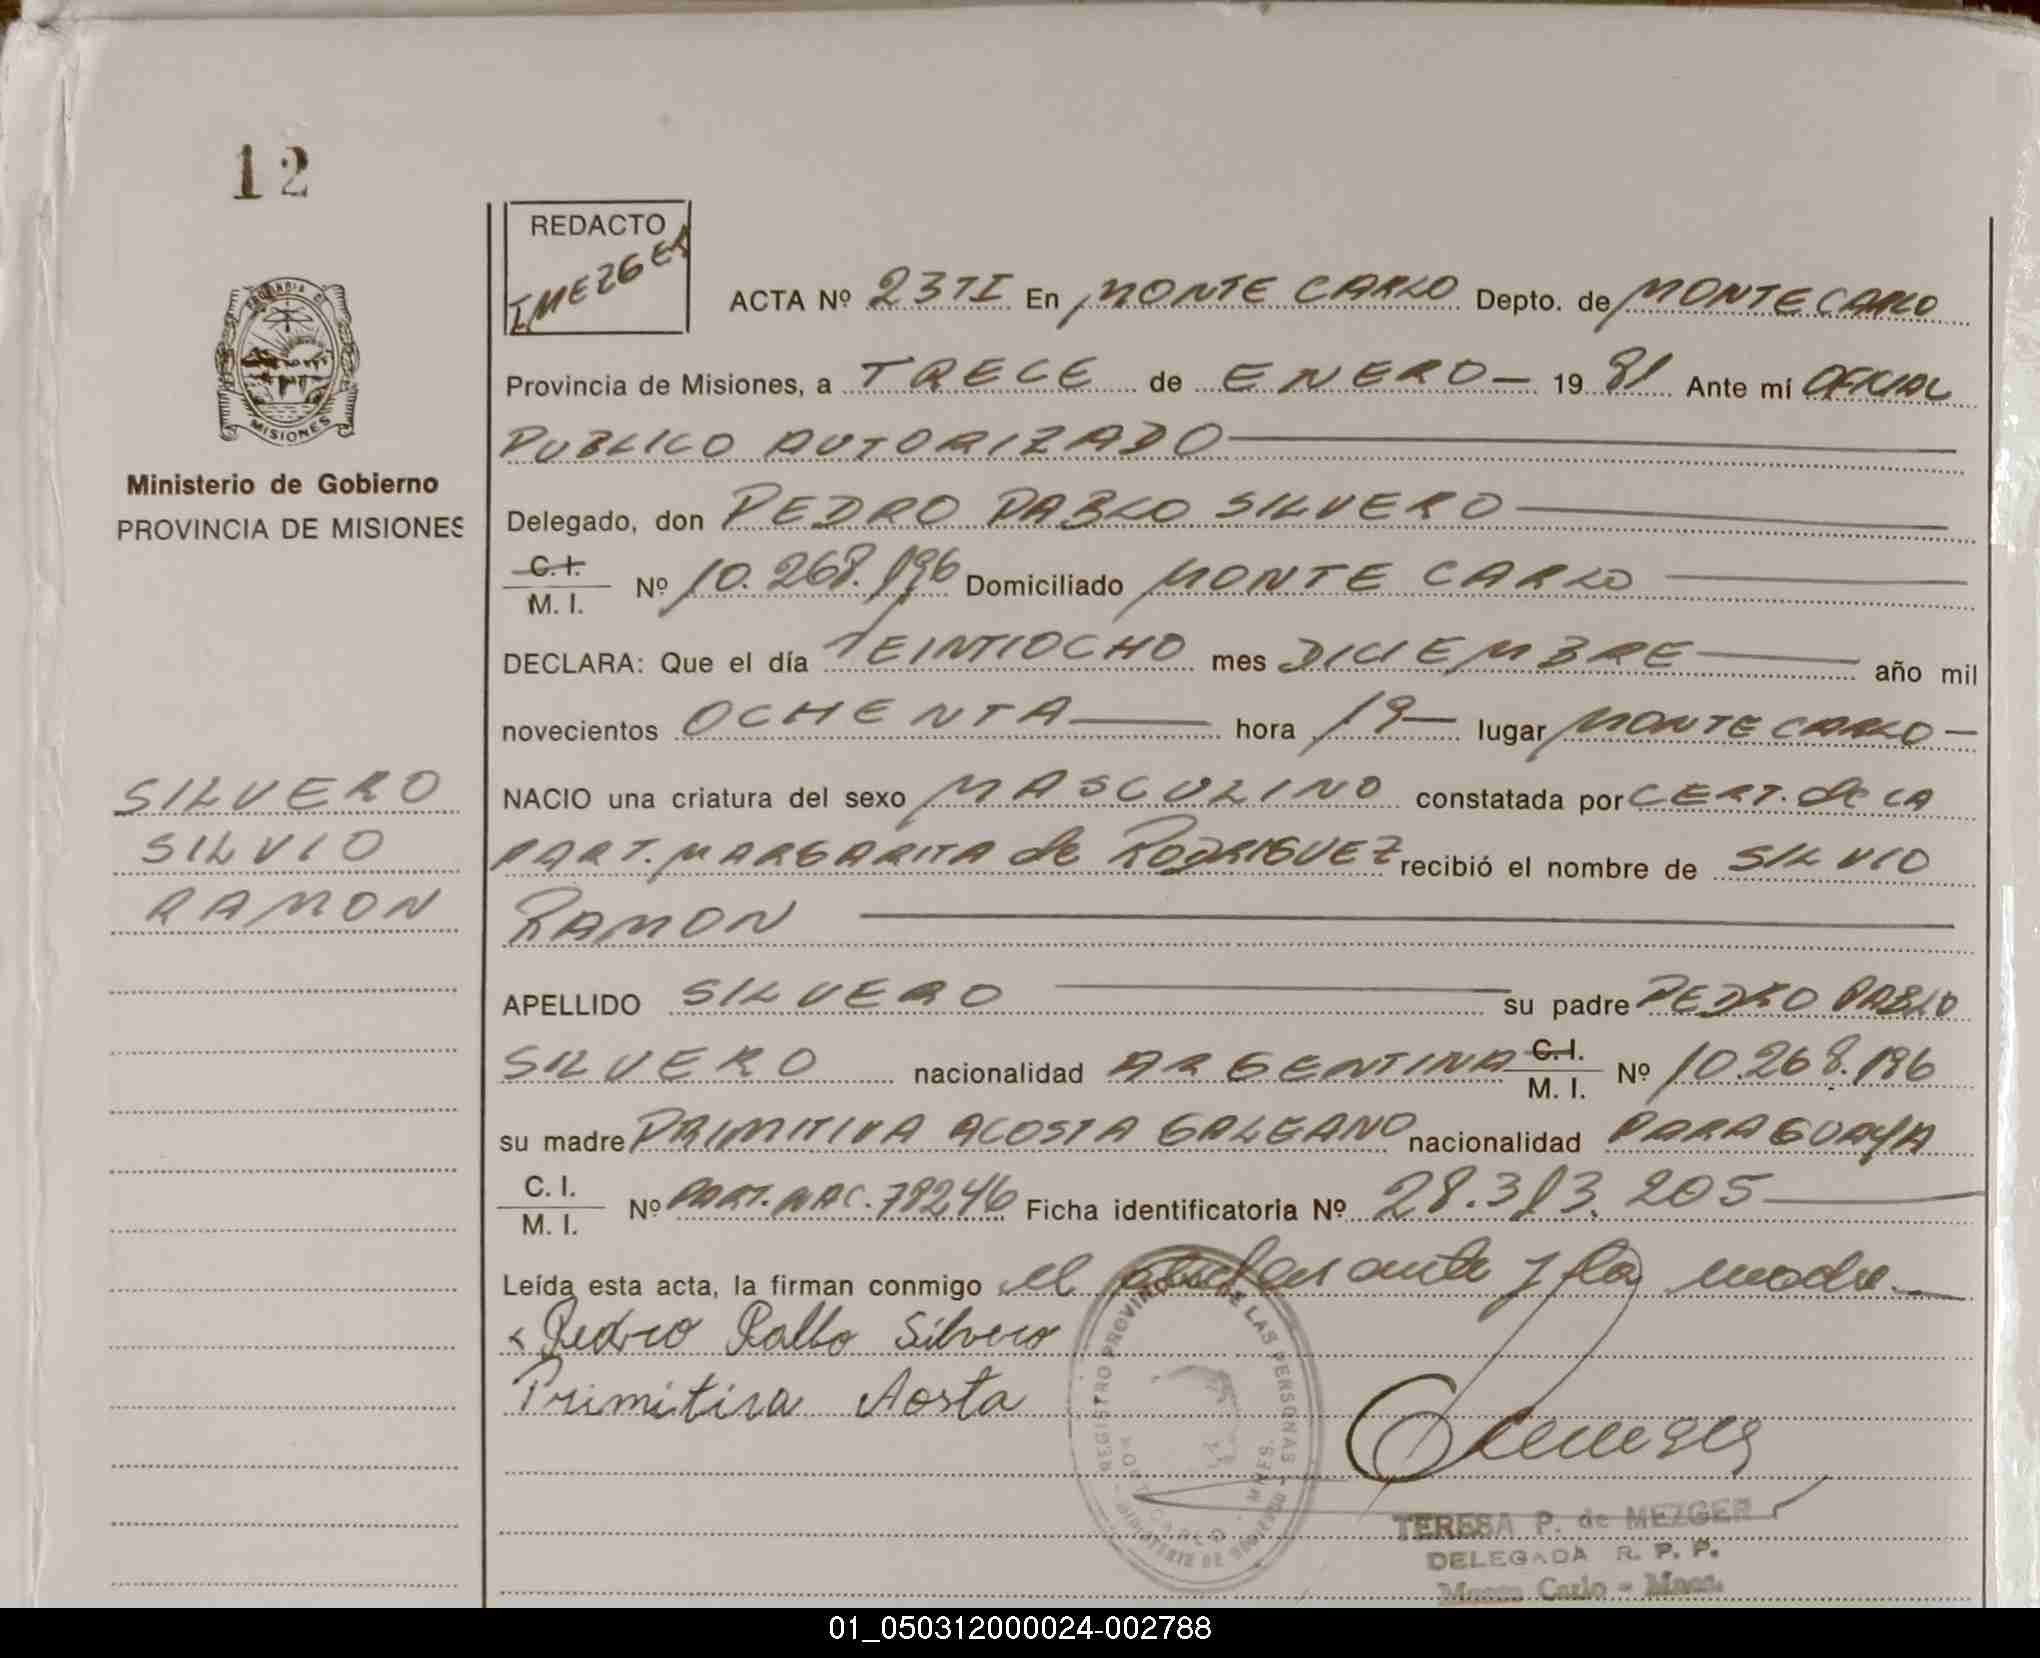 12
REDACTO
T MEZGER
ACTA Nº 23TI En MONTE CARLO Depto. de MONTECARLO
Provincia de Misiones, a TRECE de ENERO 19 81 Ante mí OFICIAL
PUBLICO AUTORIZADO
MISIONES
Ministerio de Gobierno
PROVINCIA DE MISIONES
Delegado, don PEDRO PABLO SILVERO
C.I. M. I. Nº 10.268.196 Domiciliado MONTE CARLO
DECLARA: Que el día VEINTIOCHO mes DICIEMBRE año mil
novecientos OCHENTA hora 19 lugar MONTECARLO
SILVERO
SILVIO
RAMON
NACIO una criatura del sexo MASCULINO constatada por CERT. de LA
PART. MARGARITA de RODRIGUEZ recibió el nombre de SILVIO
RAMON
APELLIDO SILVERO su padre PEDRO PABLO
SILVERO nacionalidad ARGENTINA C.I. M. I. Nº 10.268.196
su madre PRIMITIVA ACOSTA GALEANO nacionalidad PARAGUAYA
C. I. M. I. Nº PART. NAC. 78246 Ficha identificatoria Nº 28.313.205
Leída esta acta, la firman conmigo el y la madre
Pedro Pablo Silvero
Primitiva Aosta
REGISTRO PROVINCIAL DE LAS PERSONAS
MONTE CARLO - MNES.
MINISTERIO DE GOBIERNO
TERESA P. de MEZGER
DELEGADA R. P. P.
Carlo - Mnes.
01_050312000024-002788